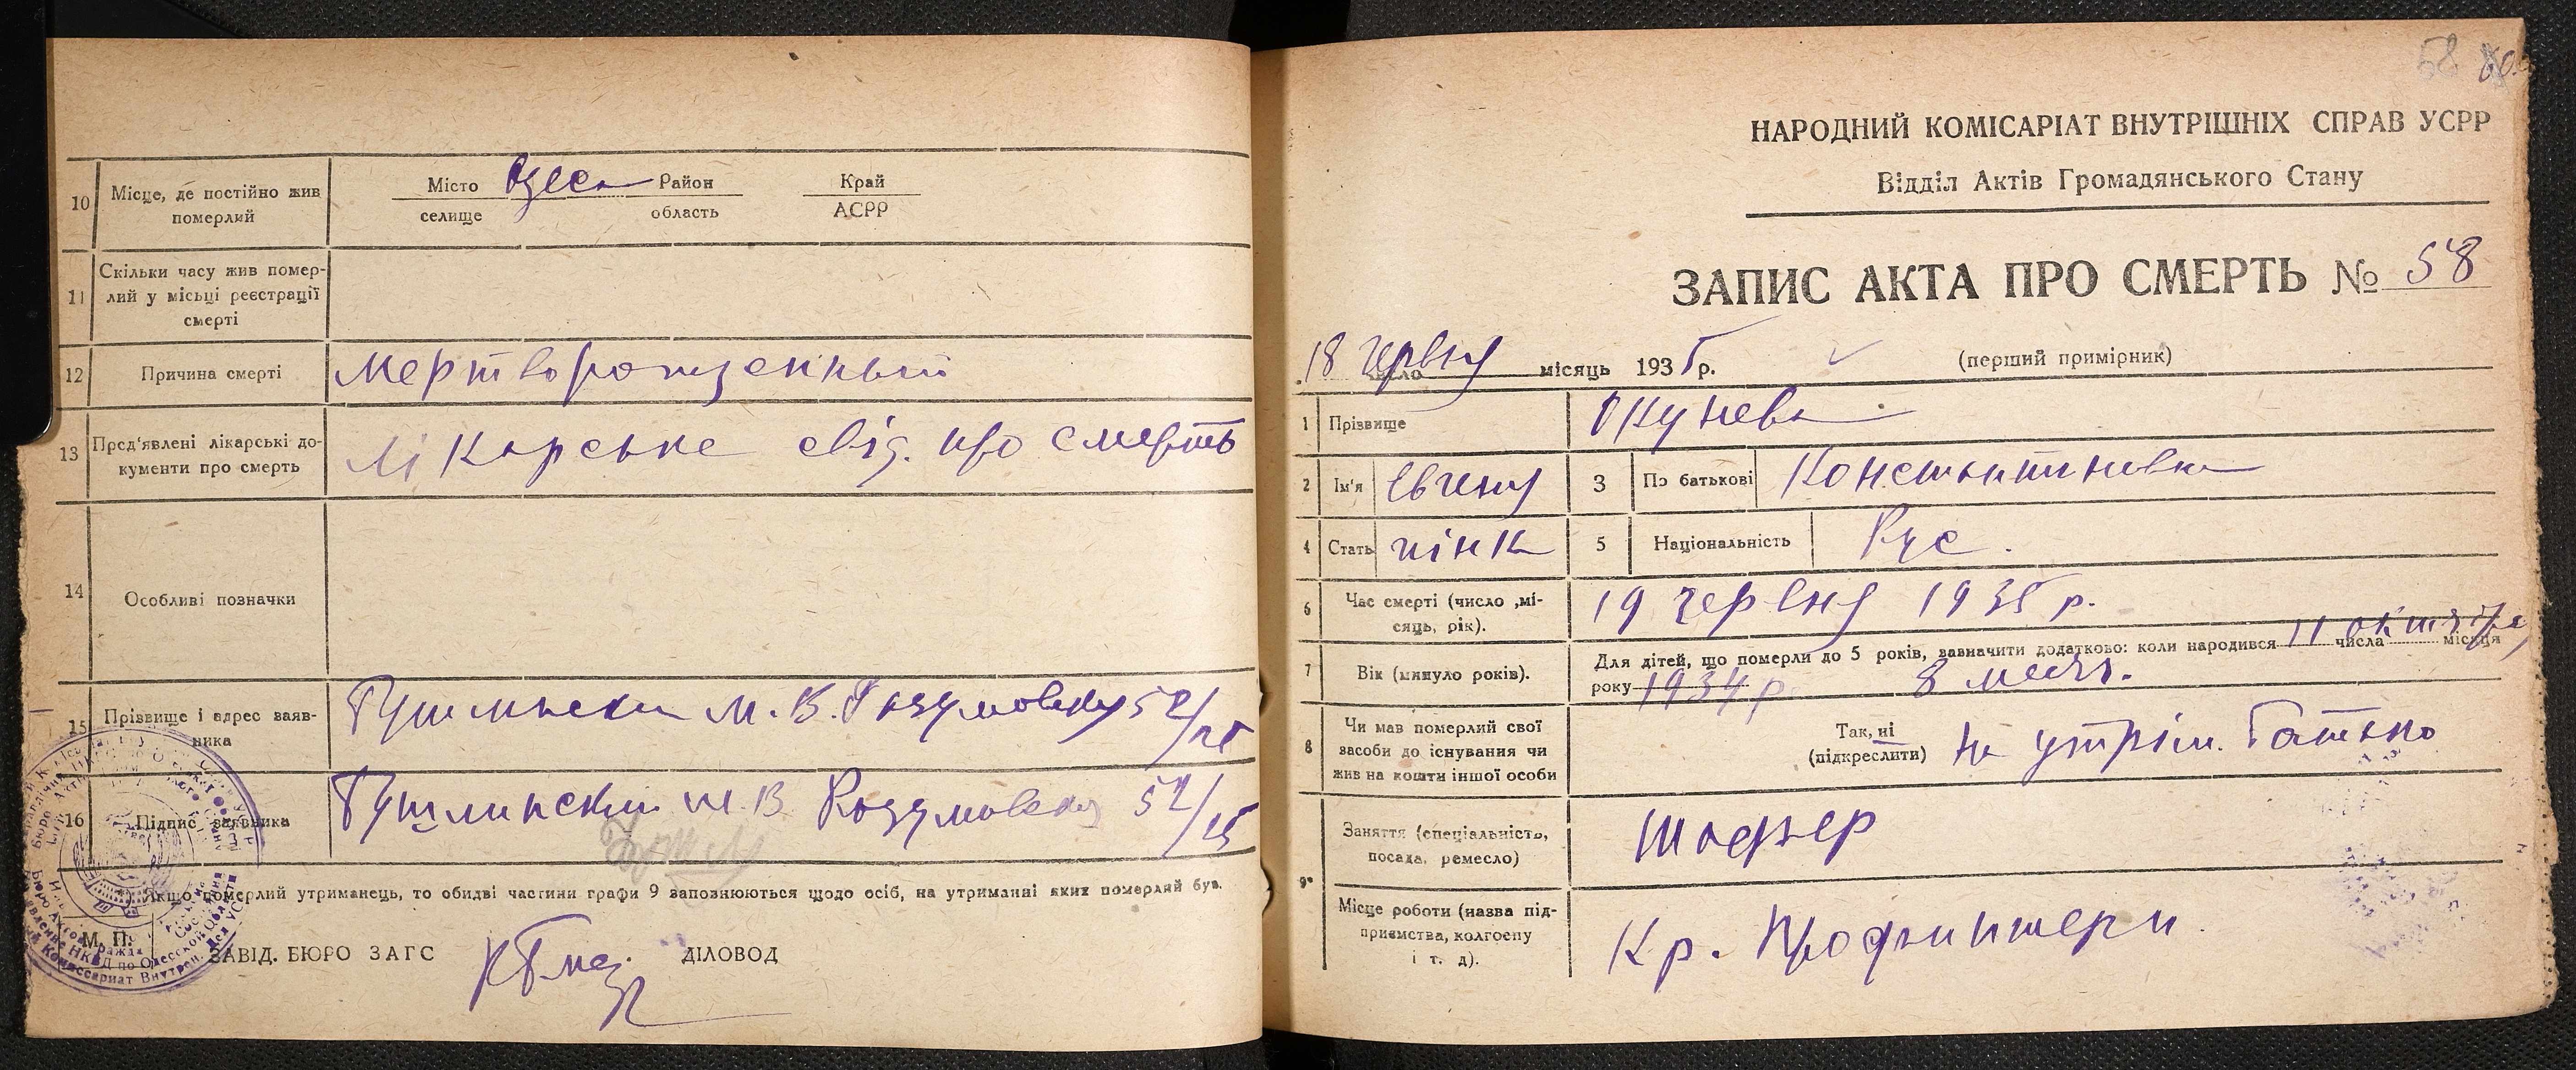 10 Місце, де постійно жив
померлий
Місто Одеса Район Край
селище область АСРР
11 Скільки часу жив помер-
лий у місьці реєстрації
смерті
12 Причина смерті Мертворожденный
13 Пред'явлені лікарські до-
кументи про смерть
лікарське свід. про смерть
14 Особливі позначки
15 Прізвище і адрес заяв-
ника
М. В. Разумовська 52/25
16 Підпис заявника
М. В. Розумовская 52/25
*) Якщо померлий утриманець, то обидві частини графи 9 заповнюються щодо осіб, на утриманні яких померлий був.
М. П.
ЗАВІД. БЮРО ЗАГС ДІЛОВОД
58
НАРОДНИЙ КОМІСАРІАТ ВНУТРІШНІХ СПРАВ УСРР
Відділ Актів Громадянського Стану
ЗАПИС АКТА ПРО СМЕРТЬ № 58
18 червня число місяць 1935 р. (перший примірник)
1 Прізвище Окунева
2 Ім'я Євгенія 3 По батькові Константиновна
4 Стать жінк 5 Національність Рус.
6 Час смерті (число ,мі-
сяць, рік).
19 червня 1935 р.
7 Вік (минуло років).
Для дітей, що померли до 5 років, зазначити додатково: коли народився 11 числа октября місяця
року 1934 р. 8 мес.
8 Чи мав померлий свої
засоби до існування чи
жив на кошти іншої особи
Так, ні
(підкреслити)
на утрім. батько
9* Заняття (спеціальність,
посада, ремесло)
шофьер
Місце роботи (назва під-
приємства, колгоспу
і т. д).
Кр. Профинтерн